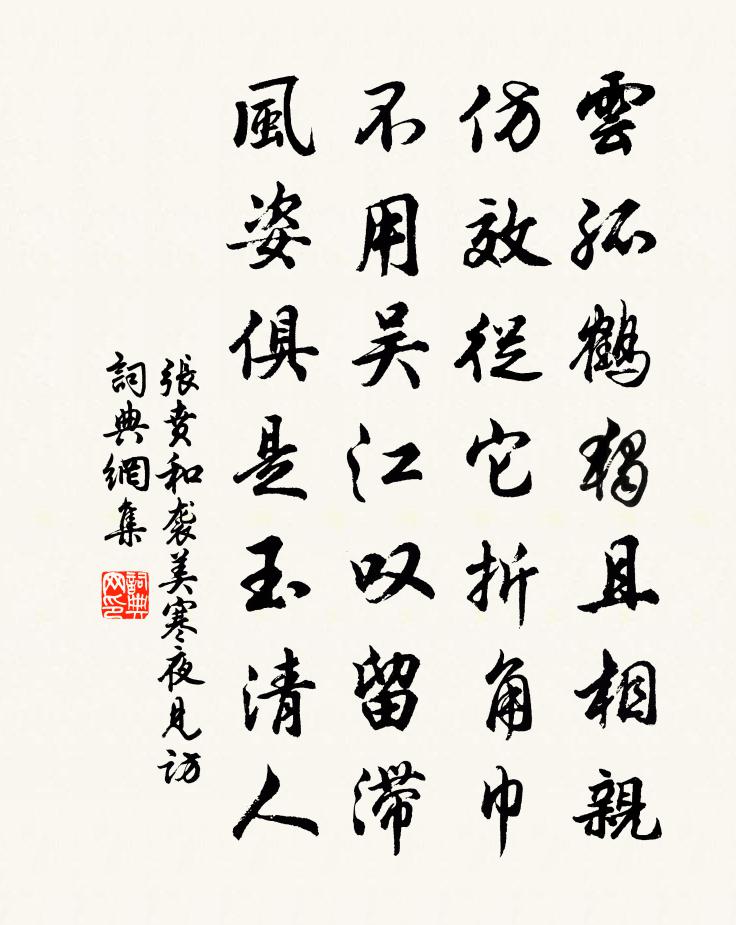 雲孤鶴獨且相親
仿效從它折角巾
不用吴江叹留滯
風姿俱是玉清人
張賁和袭美寒夜見访
詞典網集
詞典网印